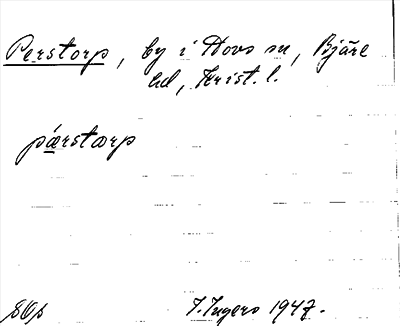 Perstorp, by i Hovs sn, Bjäre
hd, Krist. l.
pærstærp
I. Ingers 1947.